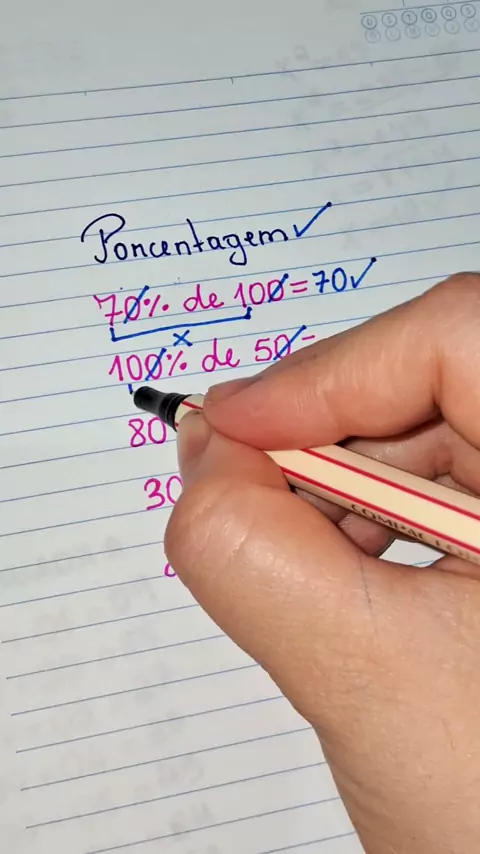 Porcentagem ✓
70% de 100 = 70 ✓
x
100% de 50 =
80
30
COMPACTOR